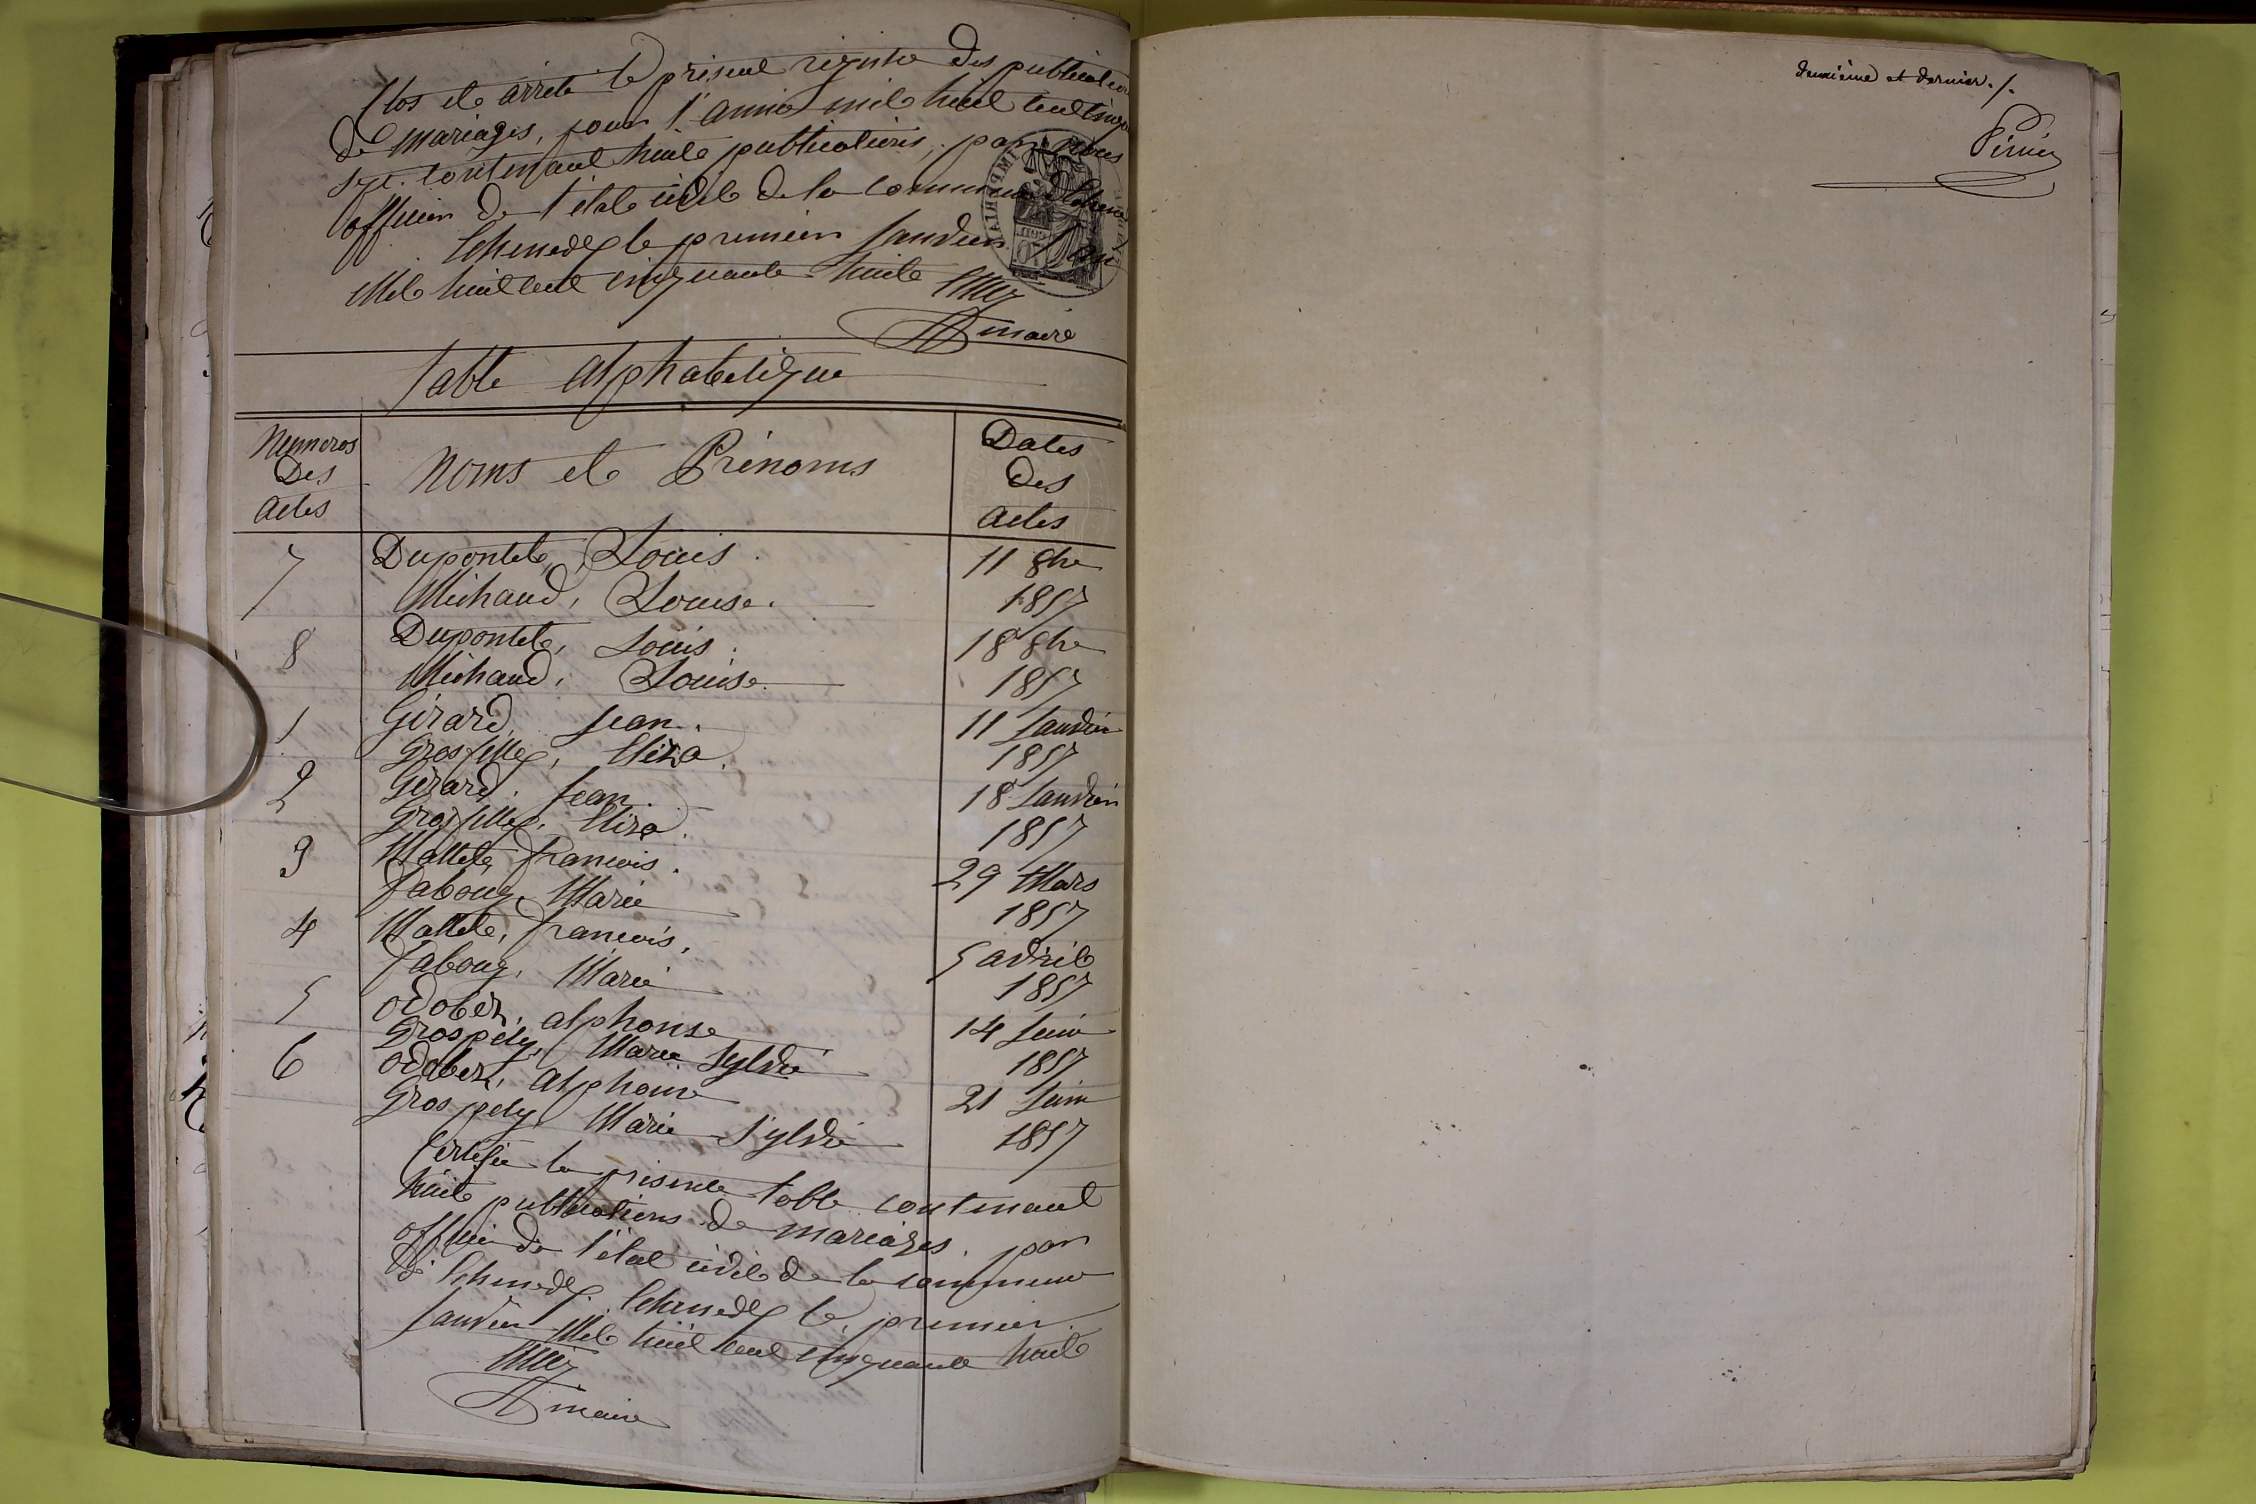 Clos et arrêté le présent registre des publications
de mariages, pour l'année mil huit cent cinqu
sept contenant huit publications, par nous
officier de l'état civil de la commune d'Echene
Echenedex le premier Janvier l'an
Mil huit cent cinquante huit
maire
Table alphabetique
Numeros
Des
actes
Noms et Prénoms
Dates
des
actes
7 Dupontet, Louis. 11 8bre
Michaud, Louise. 1857
8 Dupontet, Louis. 18 8bre
Michaud, Louise. 1857
1 Girard, Jean. 11 Janvier
Grosfillex, Eliza. 1857
2 Girard, Jean. 18 Janvier
Grosfillex, Eliza. 1857
3 Mattet, francois. 29 Mars
Jabouy, Marie 1857
4 Mattet, francois, 5 avril
Jabouy, Marie 1857
5 odobez, alphonse 14 Juin
Grospély, Marie Sylvie 1857
6 odobez, alphonse 21 Juin
Grospely Marie Sylvie 1857
Certifié la présente table contenant
huit publications de mariages, par
officier de l'état civil de la commune
Echenedex le premier
Janvier Mil huit cent cinquante huit
maire
deuxième et dernier./.